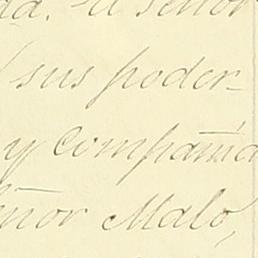 da. El señor
sus poder-
y compañia
eñor Malo,